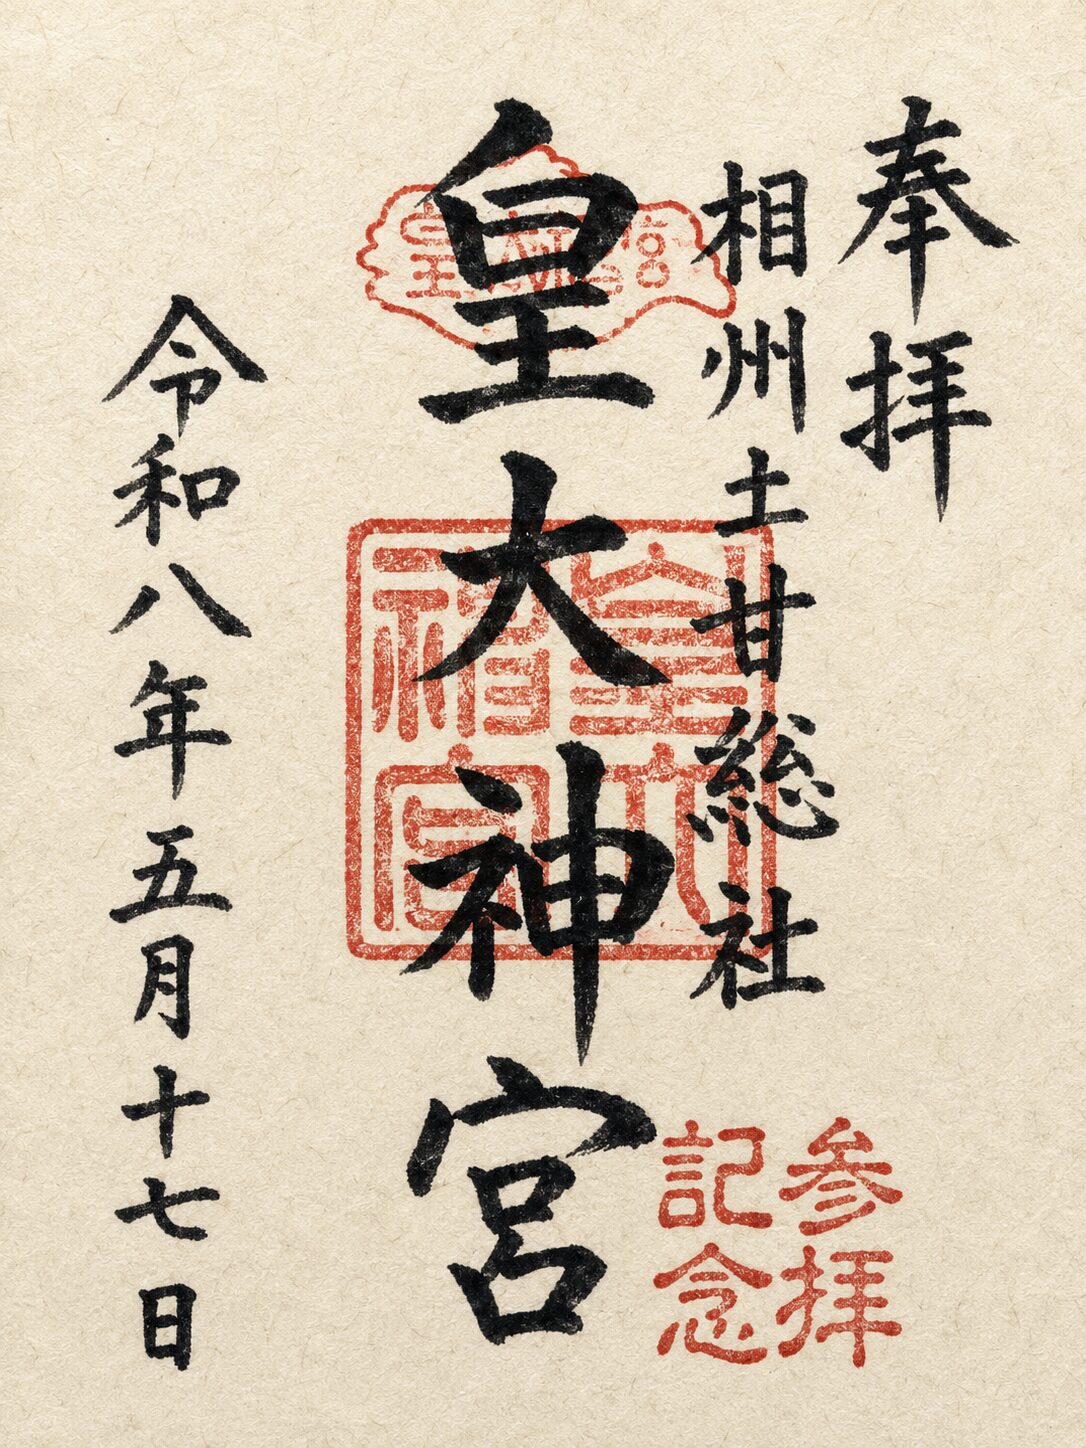 奉拝
相州土甘総社
皇大神宮
令和八年五月十七日
参拝
記念